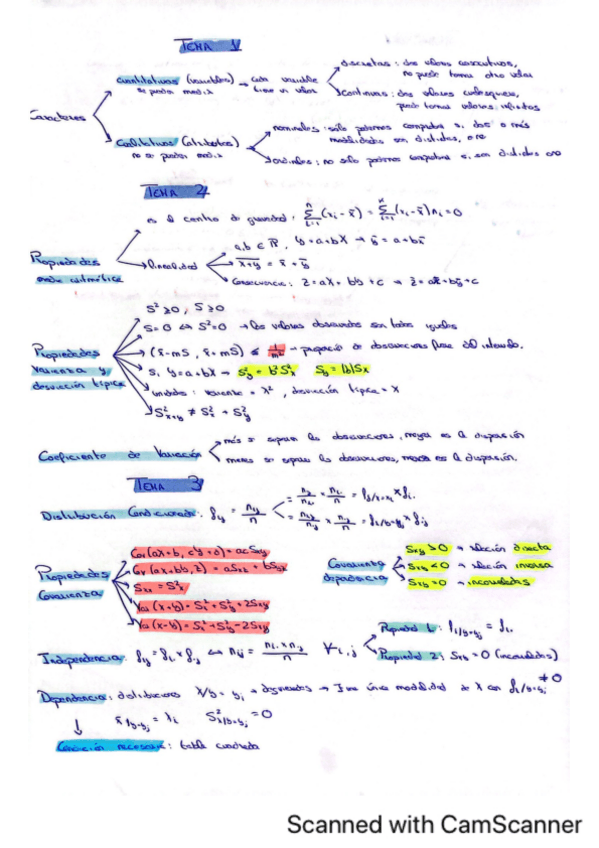 TEMA 1
Caracteres
cuantitativos (variables) → cada variable tiene un valor
se puede medir
discretas: dos valores consecutivos, no puede tomar otro valor
continuas: dos valores cualesquiera, puede tomar valores infinitos
Cualitativos (atributos)
no se pueden medir
nominales: sólo podemos comprobar si dos o más modalidades son distintas, o no
ordinales: no sólo podemos comprobar si son distintas o no
TEMA 2
Propiedades media aritmética
es el centro de gravedad: Σ(xᵢ - x̄) = Σ(xᵢ - x̄)nᵢ = 0
linealidad
a, b ∈ ℝ, y = a+bX → ȳ = a+bx̄
x+y = x̄ + ȳ
Consecuencia: Z = aX + bY + c → z̄ = ax̄ + bȳ + c
Propiedades varianza y desviación típica
S² ≥ 0, S ≥ 0
S = 0 ⇔ S² = 0 → los valores observados son todos iguales
(x̄-mS, x̄+mS) ≤ 1/m² → proporción de observaciones fuera del intervalo.
si y = a+bX → S²y = b²S²x Sy = |b|Sx
unidades: varianza = x², desviación típica = x
S²x+y ≠ S²x + S²y
Coeficiente de Variación
más se separan las observaciones, mayor es la dispersión
menos se separan las observaciones, menor es la dispersión.
TEMA 3
Distribución Condicionada: fij = nij/n
Propiedades Covarianza
Cov(ax+b, cy+d) = acSxy
Cov(ax+by, z) = aSxz + bSyz
Sxx = S²x
Var(x+y) = S²x + S²y + 2Sxy
Var(x-y) = S²x + S²y - 2Sxy
Covarianza dependencia
Sxy > 0 → relación directa
Sxy < 0 → relación inversa
Sxy = 0 → incorreladas
Independencia: fij = fi. × f.j ⇔ nij = ni. × n.j / n ∀i,j
Propiedad 1: fi/y=yj = fi.
Propiedad 2: Sxy = 0 (incorreladas)
Dependencia: distribuciones X/y = yj → degeneradas → Tiene única modalidad de X con fi/y=yj ≠ 0
x̄/y=yj = xi S²x/y=yj = 0
Condición necesaria: tabla cuadrada
Scanned with CamScanner